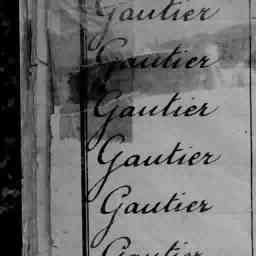 Gautier
Gautier
Gautier
Gautier
Gautier
Gautier